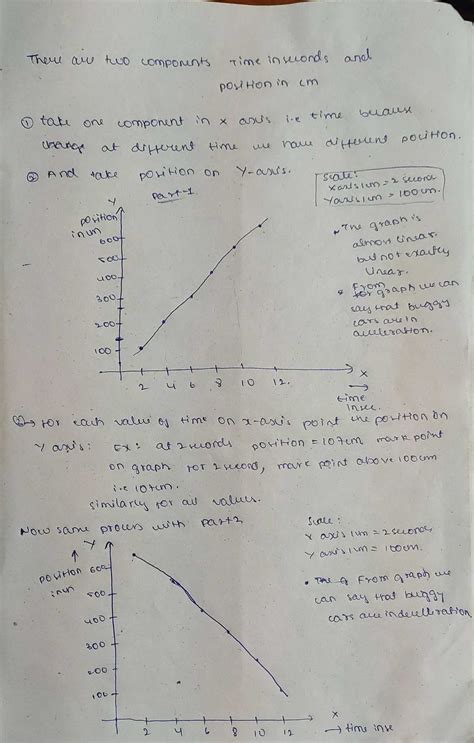 There are two components Time in seconds and
position in cm
① take one component in x axis i.e time because
change at different time we have different position.
② And take position on Y-axis.
Scale:
X axis 1cm = 2 second
Y axis 1cm = 100cm.
Part-1
Y
position
in cm
600
500
400
300
200
100
2 4 6 8 10 12.
X
time
in sec.
• The graph is
almost linear
but not exactly
linear.
• From
graph we can
say that buggy
cars are in
acceleration.
③→ For each value of time on x-axis point the position on
Y axis: Ex: at 2 seconds position = 107cm mark point
on graph for 2 second, mark point above 100cm
i.e 107cm.
similarly for all values.
Now same process with part2
Scale:
X axis 1cm = 2 seconds
Y axis 1cm = 100cm.
Y
position
in cm
600
500
400
300
200
100
2 4 6 8 10 12
X
→ time in se
• The From graph we
can say that buggy
cars are in decelleration